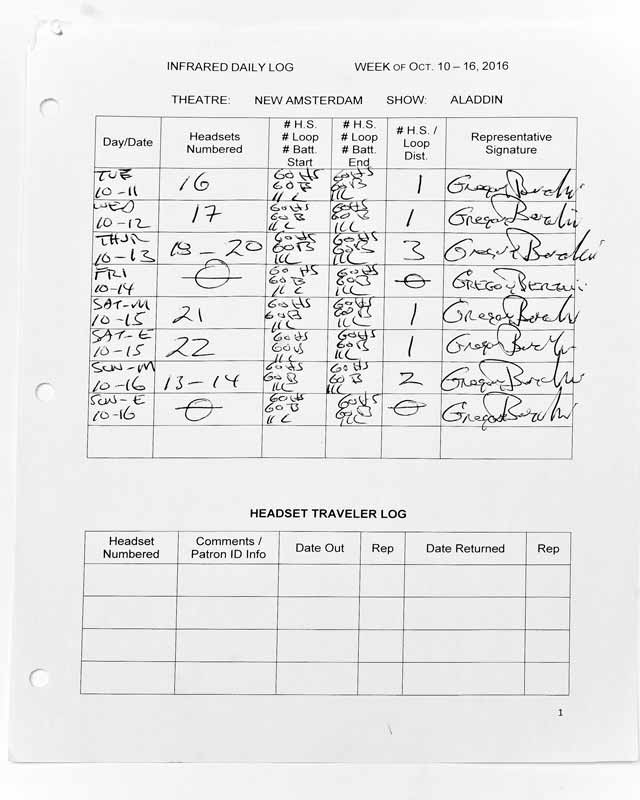 INFRARED DAILY LOG WEEK OF OCT. 10 – 16, 2016
THEATRE: NEW AMSTERDAM SHOW: ALADDIN
Day/Date Headsets Numbered # H.S. # Loop # Batt. Start # H.S. # Loop # Batt. End # H.S. / Loop Dist. Representative Signature
TUE 10-11 16 60HS 60B 60HS 60B 1 Gregory
WED 10-12 17 60HS 60B 60HS 60B 1 Gregory
THUR 10-13 18-20 60HS 60B 60HS 60B 3 Gregory
FRI 10-14 0 60 HS 60B 60HS 60B 0 GREGORY
SAT-M 10-15 21 60HS 60B 60HS 60B 1 Gregory
SAT-E 10-15 22 60HS 60B 60HS 60B 1 Gregory
SUN-M 10-16 13-14 60HS 60B 60HS 60B 2 Gregory
SUN-E 10-16 0 60HS 60B 60HS 60B 0 Gregory
HEADSET TRAVELER LOG
Headset Numbered Comments / Patron ID Info Date Out Rep Date Returned Rep
1